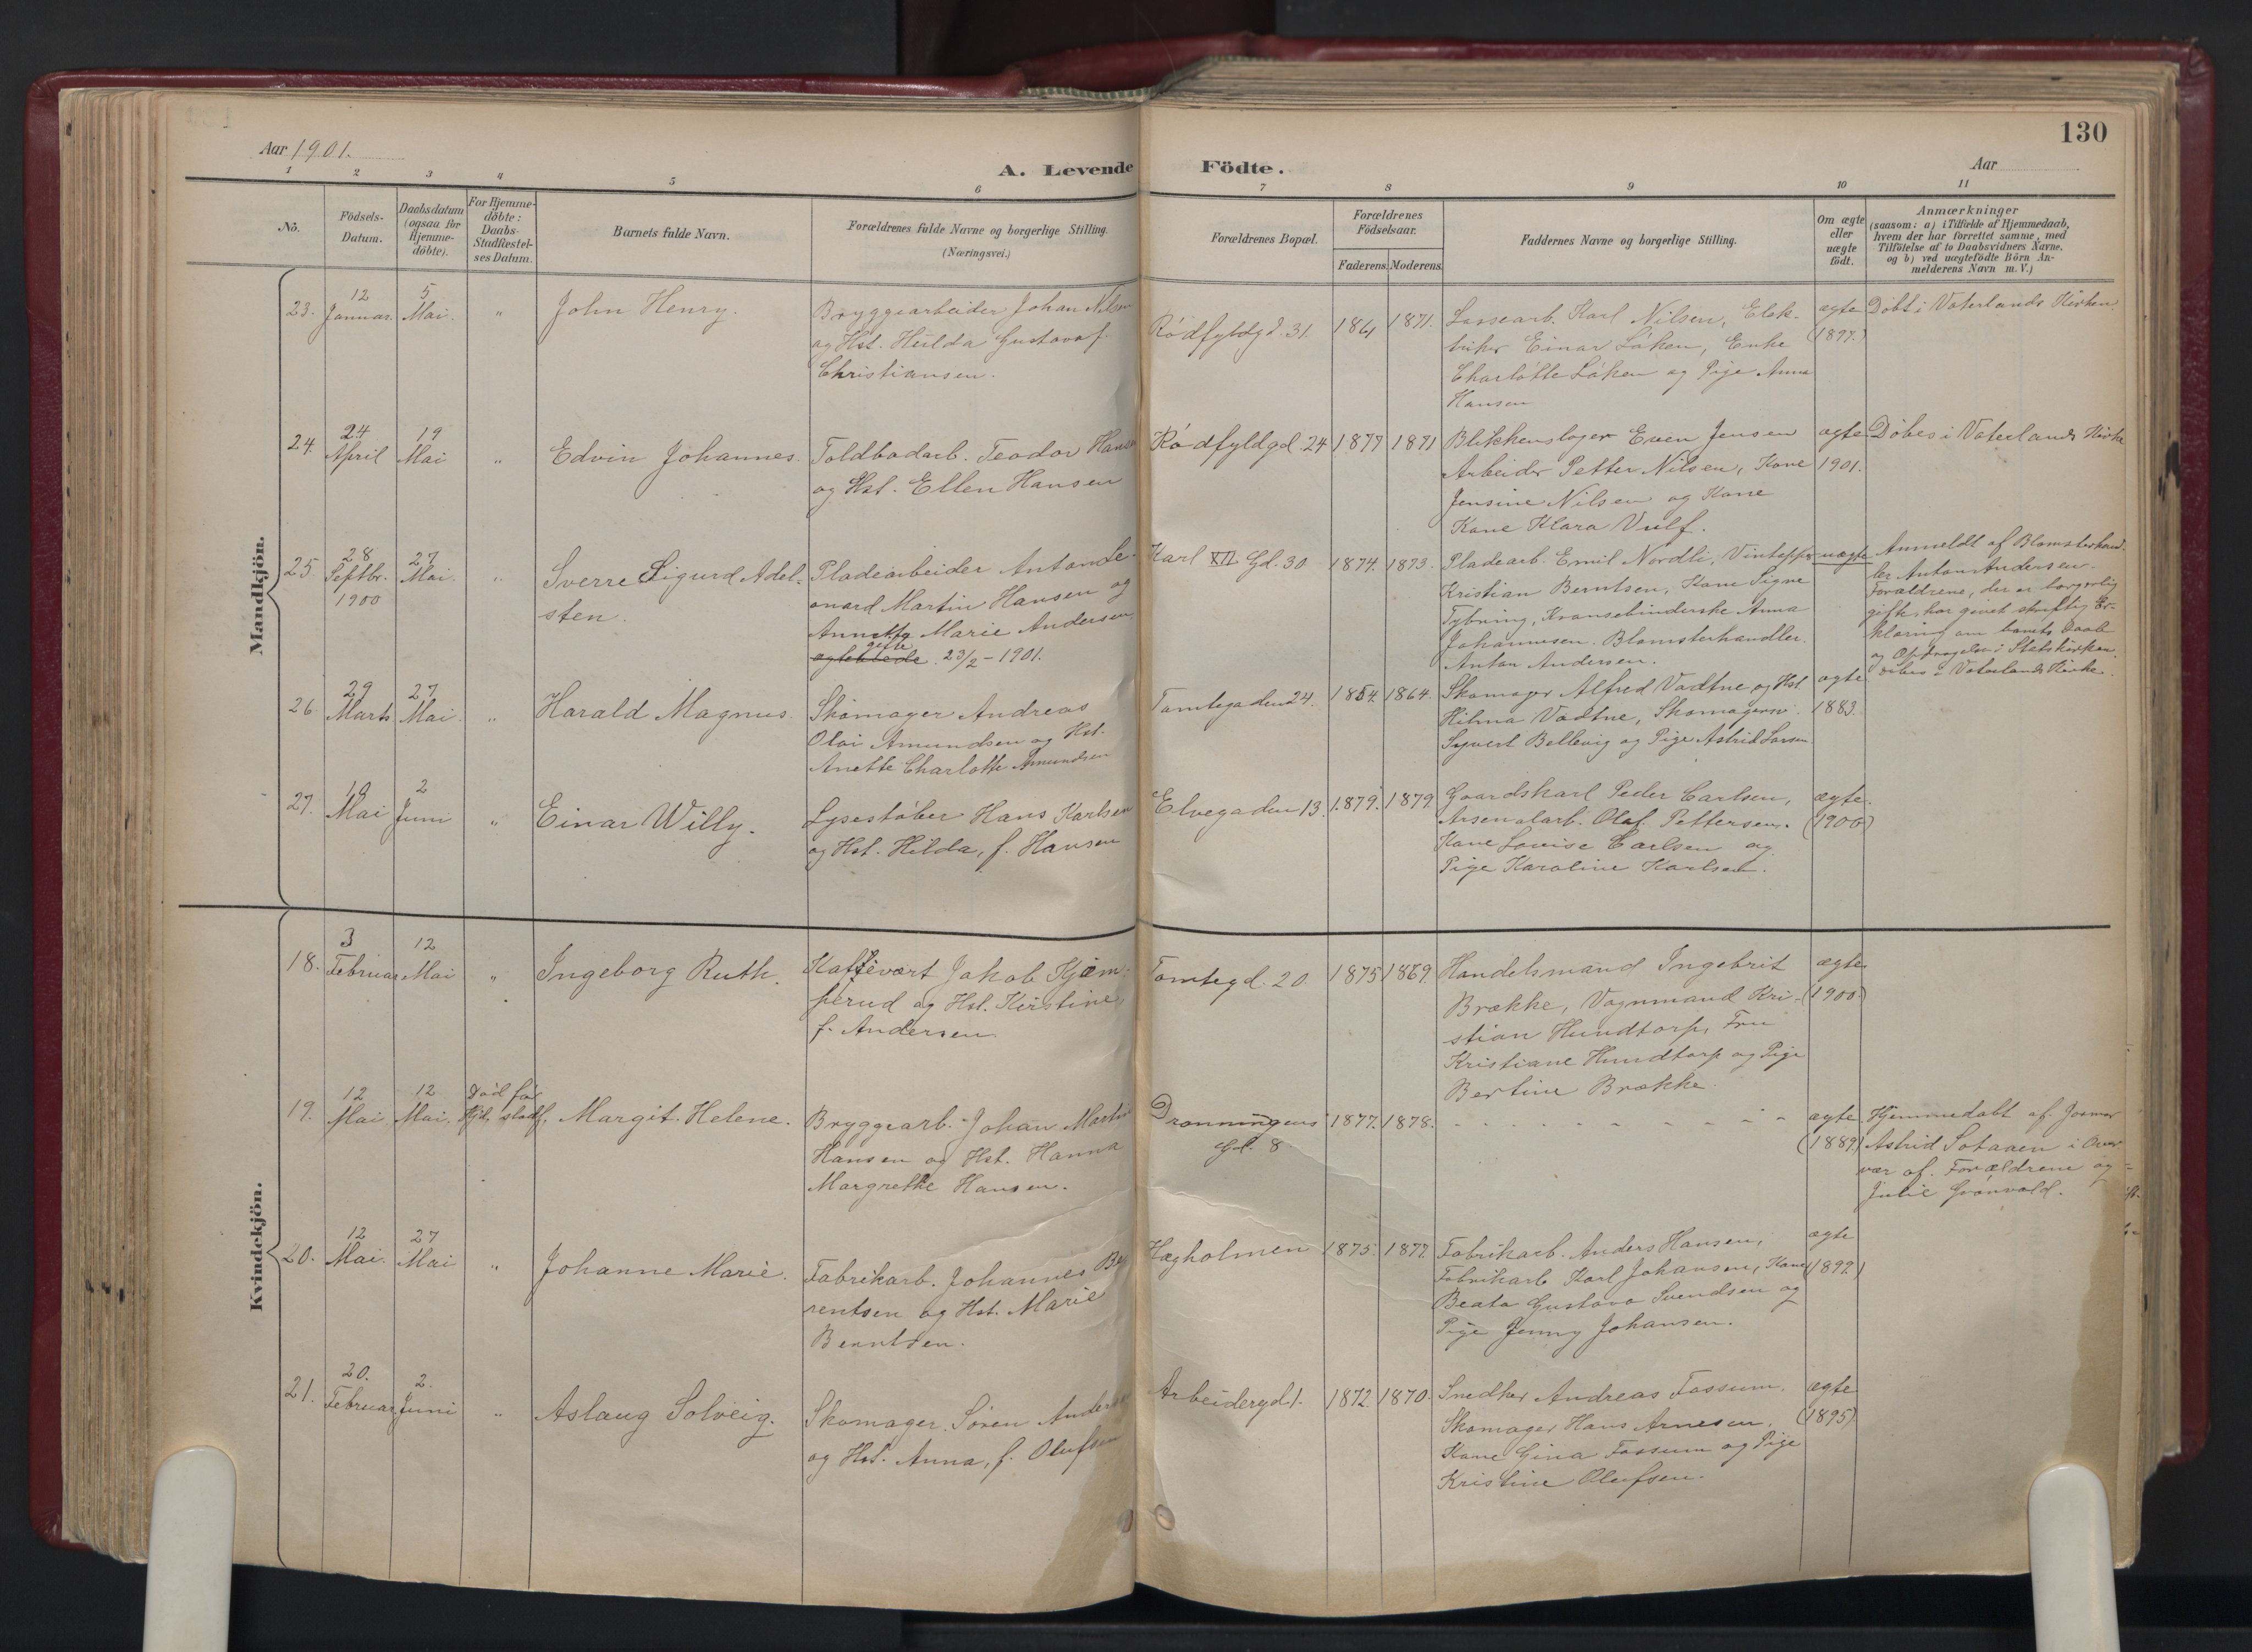 130
Aar 1901.
A. Levende Födte.
Aar
1 2 3 4 5 6 7 8 9 10 11
No.
Födsels-
Datum.
Daabsdatum
(ogsaa for
Hjemme-
döbte).
For Hjemme-
döbte:
Daabs-
Stadfæstel-
ses Datum.
Barnets fulde Navn.
Forældrenes fulde Navne og borgerlige Stilling.
(Næringsvei.)
Forældrenes Bopæl.
Forældrenes
Födselsaar.
Faderens. Moderens.
Faddernes Navne og borgerlige Stilling.
Om ægte
eller
uægte
födt.
Anmærkninger
(saasom: a) i Tilfælde af Hjemmedaab,
hvem der har forrettet samme, med
Tilföielse af to Daabsvidners Navne,
og b) ved uægtefödte Börn An-
melderens Navn m. V.)
Mandkjön.
23.
12
Januar.
5
Mai.
"
John Henry.
Bryggearbeider Johan Nilsen
og Hst. Hulda Gustava f.
Christiansen.
Rödfyldgd. 31.
1861
1871.
Lossearb. Karl Nilsen, Elek-
triker Einar Löken, Enke
Charlotte Löken og Pige Anna
Hansen
ægte
(1897.)
Döbt i Vaterlands Kirken.
24.
24
April
19
Mai
"
Edvin Johannes.
Toldbodarb. Teodor Hansen
og Hst. Ellen Hansen
Rödfyldgd. 24
1877
1871
Blikkenslager Even Jensen
Arbeider Petter Nilsen, Kone
Jensine Nilsen og Kone
Kone Klara Vulf.
ægte
1901.
Döbes i Vaterlands Kirke
25.
28
Septbr.
1900
27
Mai.
"
Sverre Sigurd Adel-
sten.
Pladearbeider Anton Le-
onard Martin Hansen og
Annette Marie Andersen
gifte
ægteviede. 23/2 - 1901.
Karl XII Gd. 30
1874.
1873.
Pladearb. Emil Nordli, Vintapper
Kristian Berntsen, Kone Signe
Tybring, Kransebinderske Anna
Johannesen. Blomsterhandler
Anton Andersen.
uægte
Anmeldt af Blomsterhand-
ler Anton Andersen.
Forældrene, der er borgerlig
gifte, har givet skriftlig Er-
klæring om barnets Daab
og Optagelse i Statskirken.
döbes i Vaterlands Kirke.
26.
29
Marts
27
Mai.
"
Harald Magnus.
Skomager Andreas
Olai Amundsen og Hst.
Anette Charlotte Amundsen
Tomtegaden 24.
1854.
1864.
Skomager Alfred Vadtne og Hst.
Hilma Vadtne, Skomagersv.
Syvert Bellevig og Pige Astrid Larsen.
ægte
1883.
27.
10
Mai
2
Juni
"
Einar Willy.
Lysestöber Hans Karlsen
og Hst. Hilda, f. Hansen
Elvegaden 13.
1879.
1879
Gaardskarl Peder Carlsen,
Arsenalarb. Olaf Pettersen.
Kone Lovise Carlsen og
Pige Karoline Karlsen.
ægte.
(1900)
Kvindekjön.
18.
3
Februar
12
Mai
"
Ingeborg Ruth.
Kaffevært Jakob Kjem-
perud og Hst. Kirstine
f. Andersen.
Tomtegd. 20.
1875
1869.
Handelsmand Ingebrit
Brække, Vognmand Kri-
stian Hundtorp, Fru
Kristiane Hundtorp og Pige
Bertine Brække.
ægte
(1900)
19.
12
Mai
12
Mai.
Död før
Kjd. stadf.
Margit Helene.
Bryggearb. Johan Martin
Hansen og Hst. Hanna
Margrethe Hansen.
Dronningens
Gd. 8
1877.
1878.
- - - - - - - - -
ægte
(1889.)
Hjemmedöbt af Jormor
Astrid Sotaaen i Over-
vær af Forældrene og
Julie Grönvold.
20.
12
Mai.
27
Mai
"
Johanne Marie.
Fabrikarb. Johannes Be
rentsen og Hst. Marie
Berentsen.
Hægholmen
1875.
1877.
Fabrikarb. Anders Hansen,
Fabrikarb. Karl Johansen, Kone
Beata Gustava Svendsen og
Pige Jenny Johansen.
ægte
(1899.)
21.
20.
Februar
2.
Juni
"
Aslaug Solveig.
Skomager Sören Andersen
og Hst. Anna, f. Olufsen
Arbeidergd. 1.
1872.
1870.
Snedker Andreas Fossum.
Skomager Hans Arnesen.
Kone Gina Fossum og Pige
Kristine Olufsen.
ægte
(1895)